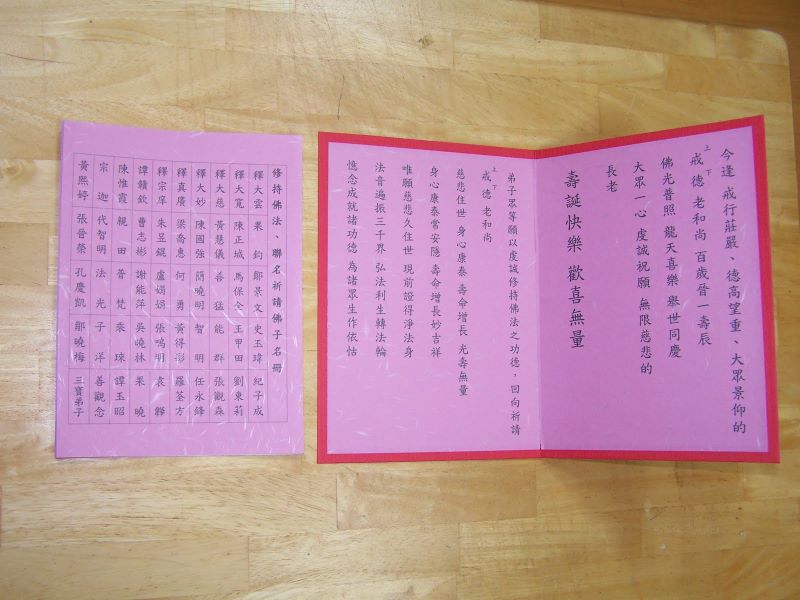 今逢 戒行莊嚴、德高望重、大眾景仰的
上戒下德 老和尚 百歲晉一壽辰
佛光普照 龍天喜樂 舉世同慶
大眾一心 虔誠祝願 無限慈悲的
長老
壽誕快樂 歡喜無量
弟子眾等願以虔誠修持佛法之功德，回向祈請
上戒下德 老和尚
慈悲住世 身心康泰 壽命增長 光壽無量
身心康泰常安隱 壽命增長妙吉祥
唯願慈悲久住世 現前證得淨法身
法音遍振三千界 弘法利生轉法輪
憶念成就諸功德 為諸眾生作依怙
修持佛法、聯名祈請佛子名冊
釋大雲 果 鈞 鄔景文 史玉瑋 紀子成
釋大寬 陳正城 馬保全 王甲田 劉東莉
釋大慈 黃慧儀 善 猛 能 群 張觀森
釋大妙 陳國強 簡曉明 智 明 任永鋒
釋真廣 梁喬惠 何 勇 黃得彰 羅荃方
釋宗庠 朱昱錕 盧嫺娟 張鳴明 袁 驊
譚贛欽 曹志彬 謝能萍 吳曉林 果 曉
陳惟霞 親 田 普 梵 乘 琛 譚玉昭
宗 迦 代智明 法 光 子 洋 善觀念
黃熙婷 張晉榮 孔慶凱 鄒曉梅 三寶弟子